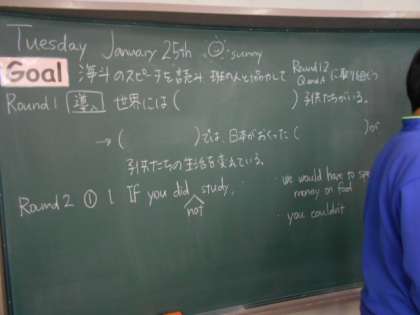 Tuesday January 25th sunny
Goal 海斗のスピーチを読み 班の人と協力して Round 1,2 に取り組もう
Round 1 導入 世界には( )子供たちがいる。
→( )では、日本がおくった( )が
子供たちの生活を変えている。
Round 2 ① 1 If you did study, ・we would have to
not money on food
・you couldn't